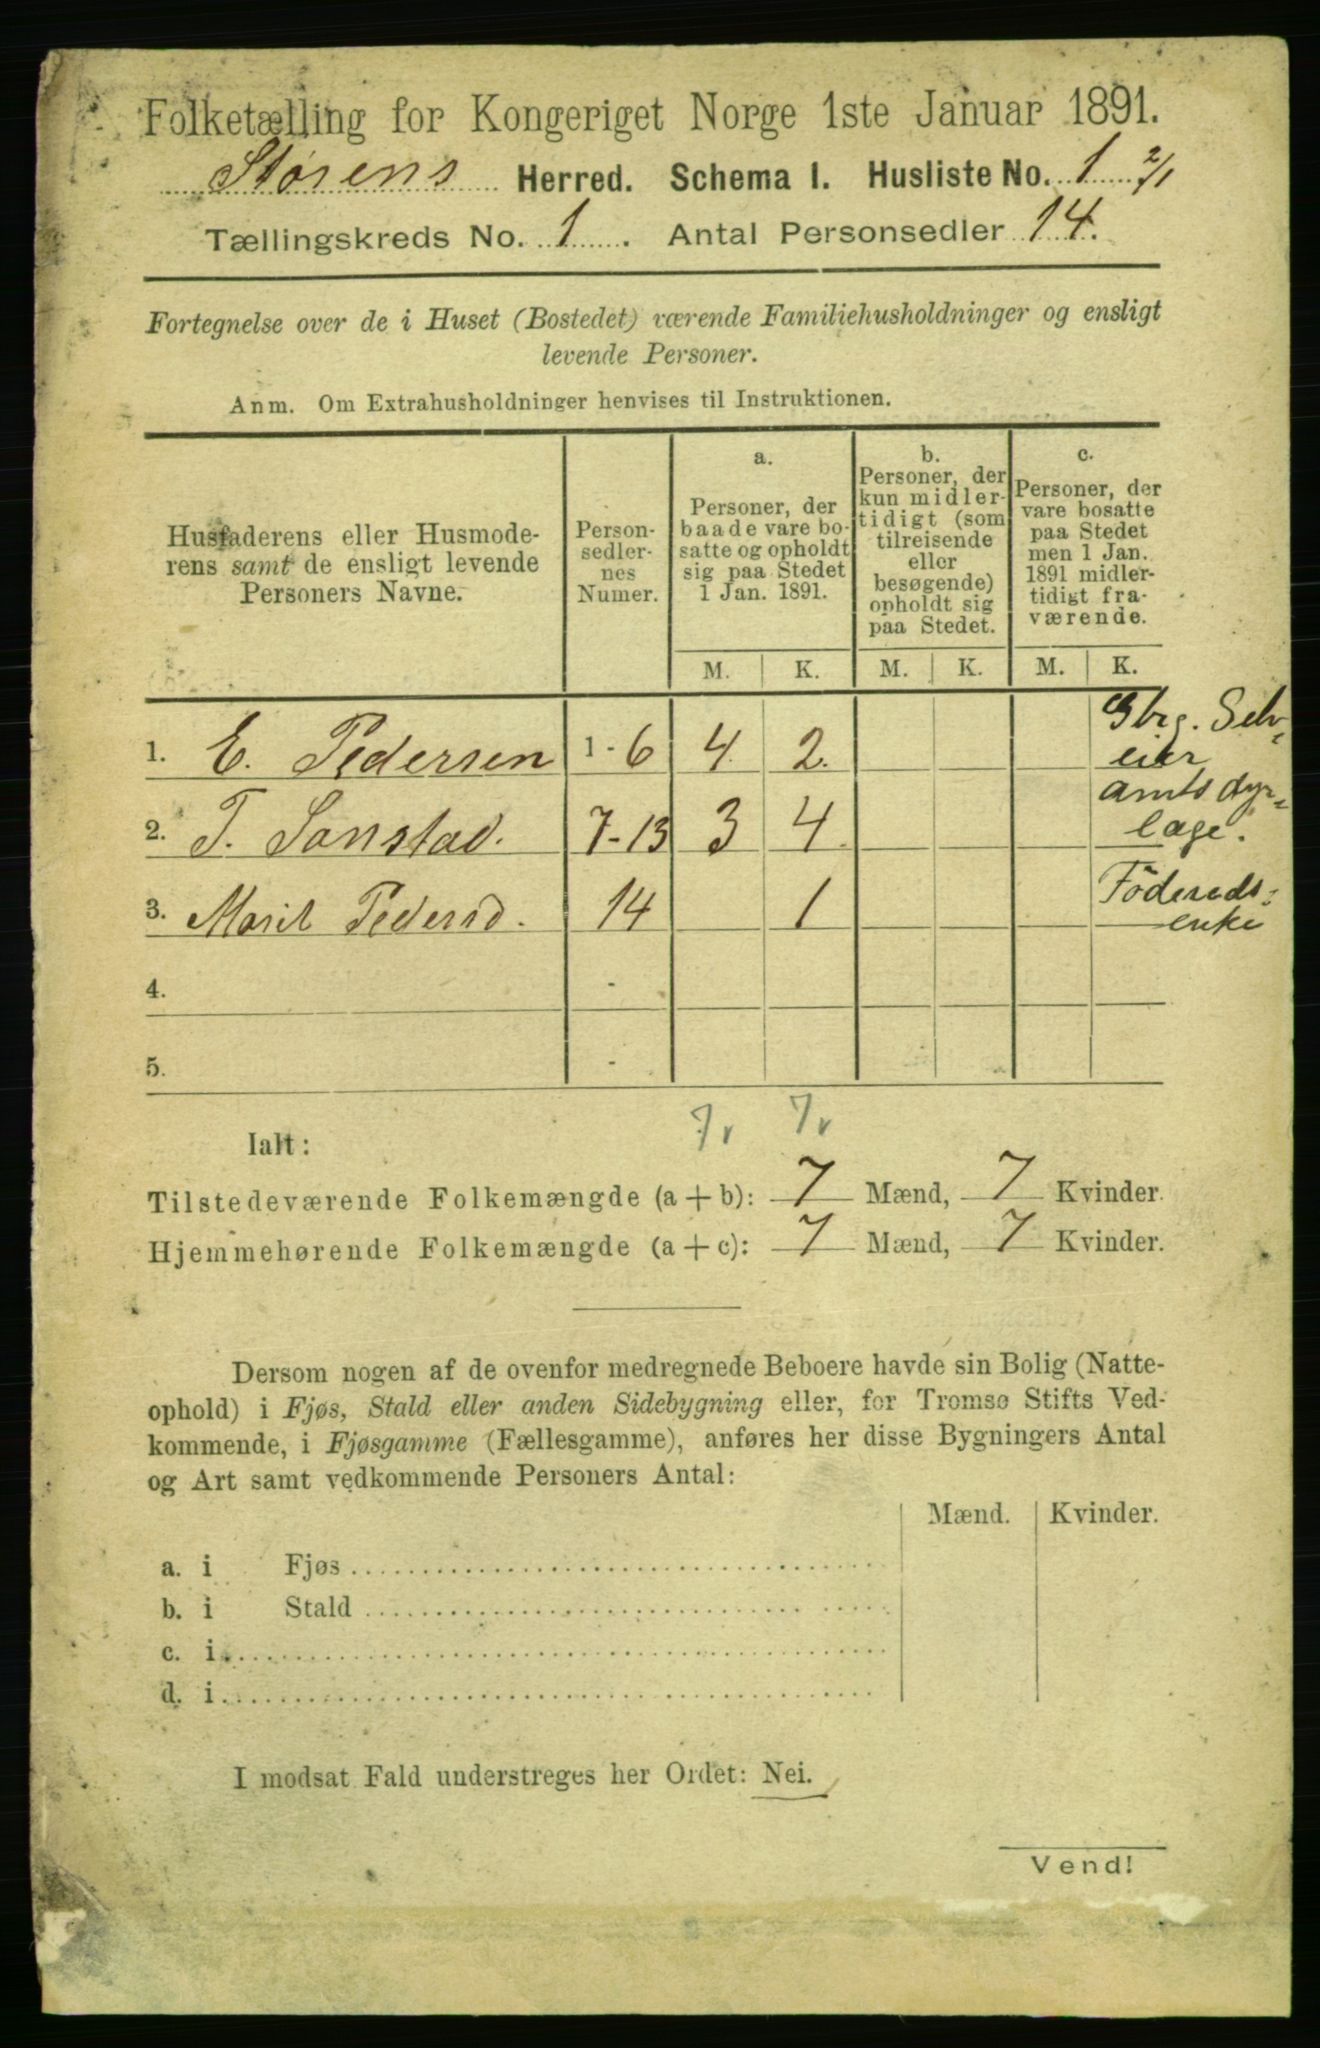 Folketælling for Kongeriget Norge 1ste Januar 1891.
Størens Herred. Schema I. Husliste No. 1 2/1
Tællingskreds No. 1. Antal Personsedler 14.
Fortegnelse over de i Huset (Bostedet) værende Familiehusholdninger og ensligt
levende Personer.
Anm. Om Extrahusholdninger henvises til Instruktionen.
Husfaderens eller Husmode-
rens samt de ensligt levende
Personers Navne.
Person-
sedler-
nes
Numer.
a.
Personer, der
baade vare bo-
satte og opholdt
sig paa Stedet
1 Jan. 1891.
b.
Personer, der
kun midler-
tidigt (som
tilreisende
eller
besøgende)
opholdt sig
paa Stedet.
c.
Personer, der
vare bosatte
paa Stedet
men 1 Jan.
1891 midler-
tidigt fra-
værende.
M. K. M. K. M. K.
1. E. Pedersen 1-6 4. 2. Gbrg. Selv-
eier
2. T. Sonstad. 7-13 3 4 amtsdyr-
læge.
3. Marit Pedersd. 14 1 Föderåds-
enke
4. -
5. -
7v 7v
Ialt:
Tilstedeværende Folkemængde (a + b): 7 Mænd, 7 Kvinder.
Hjemmehørende Folkemængde (a + c): 7 Mænd, 7 Kvinder.
Dersom nogen af de ovenfor medregnede Beboere havde sin Bolig (Natte-
ophold) i Fjøs, Stald eller anden Sidebygning eller, for Tromsø Stifts Ved-
kommende, i Fjøsgamme (Fællesgamme), anføres her disse Bygningers Antal
og Art samt vedkommende Personers Antal:
Mænd. Kvinder.
a. i Fjøs
b. i Stald
c. i
d. i
I modsat Fald understreges her Ordet: Nei.
Vend!